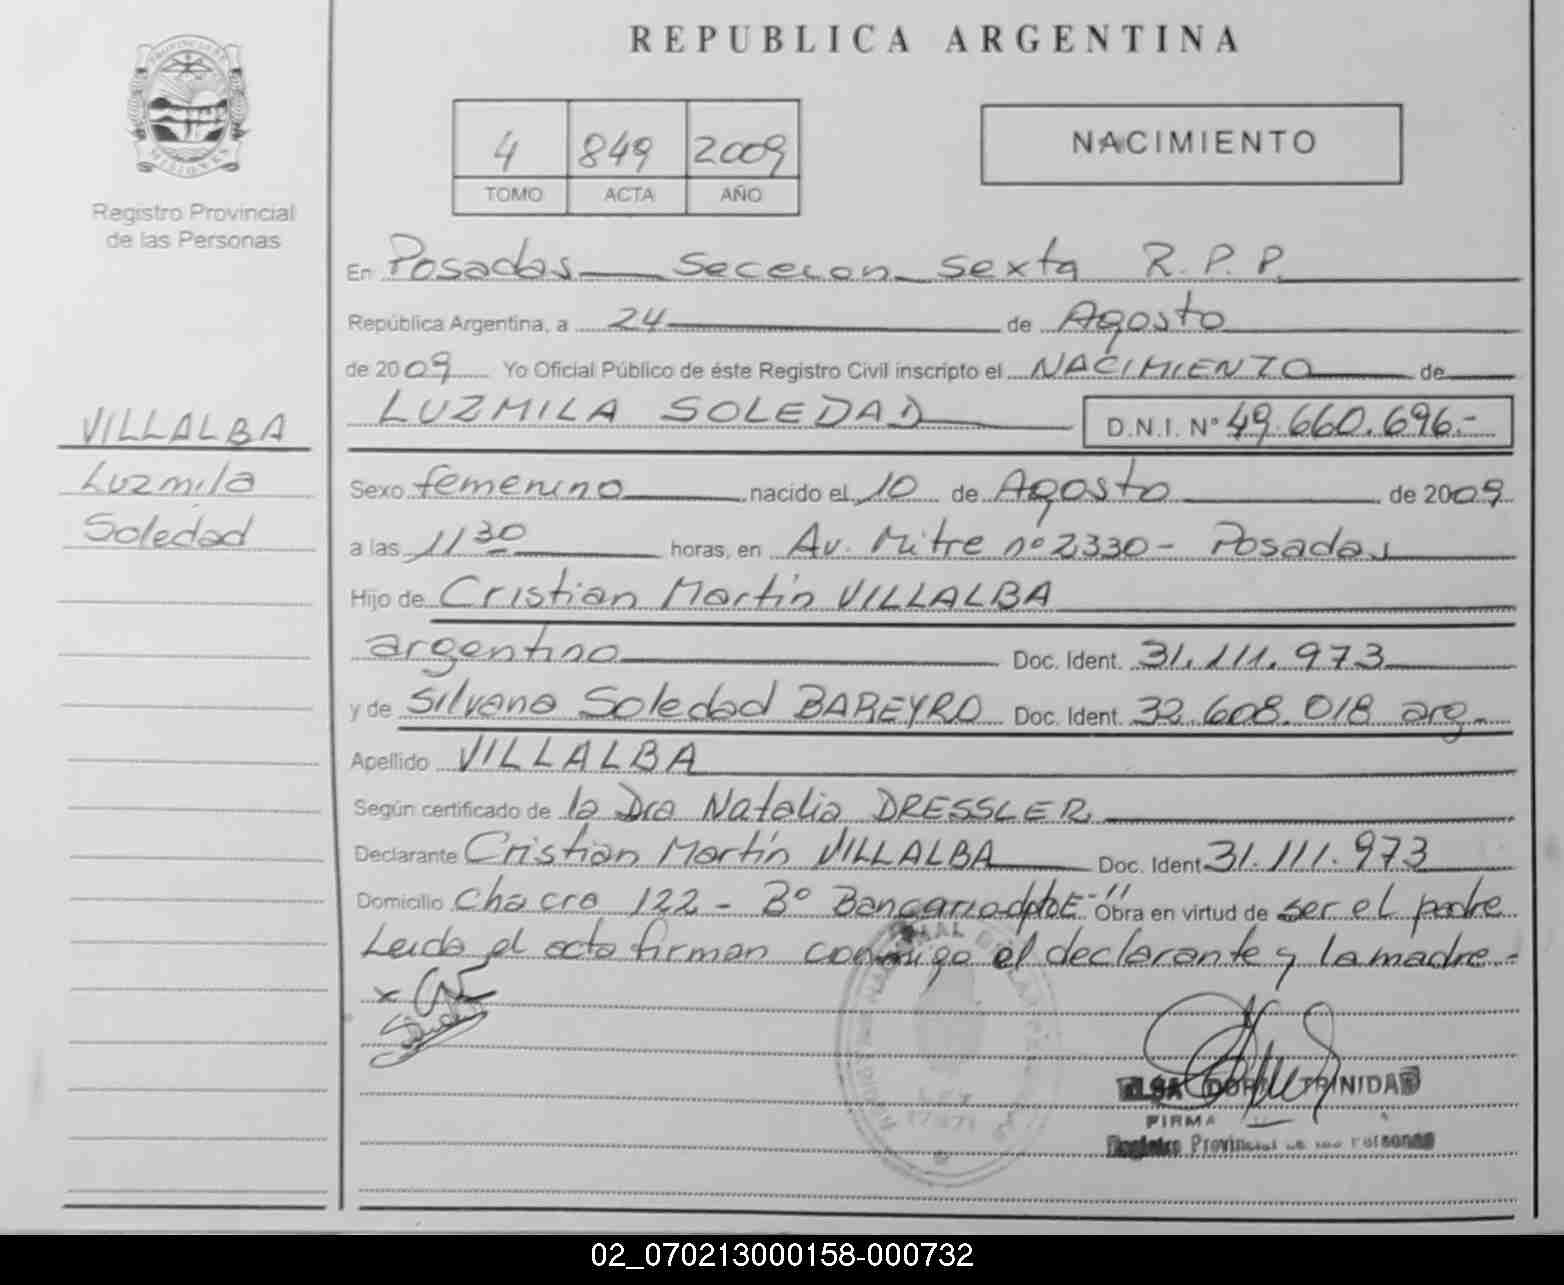 REPUBLICA ARGENTINA
PROVINCIA DE MISIONES
Registro Provincial
de las Personas
4 849 2009
TOMO ACTA AÑO
NACIMIENTO
En Posadas Sececion sexta R.P.P.
República Argentina, a 24 de Agosto
de 2009 Yo Oficial Público de éste Registro Civil inscripto el NACIMIENTO de
LUZMILA SOLEDAD D.N.I. N° 49.660.696.-
VILLALBA
Luzmila
Soledad
Sexo femenino nacido el 10 de Agosto de 2009
a las 11 30 horas, en Av. Mitre n° 2330 - Posadas
Hijo de Cristian Martín VILLALBA
argentino Doc. Ident. 31.111.973
y de Silvana Soledad BAREYRO Doc. Ident. 32.608.018 arg.-
Apellido VILLALBA
Según certificado de la Dra Natalia DRESSLER
Declarante Cristian Martín VILLALBA Doc. Ident 31.111.973
Domicilio Chacra 122 - B° Bancario dpto E-11 Obra en virtud de ser el padre
Leída el acta firman conmigo el declarante y la madre.-
TRINIDAD
FIRMA
Registro Provincial de las Personas
LEY
17671
02_070213000158-000732